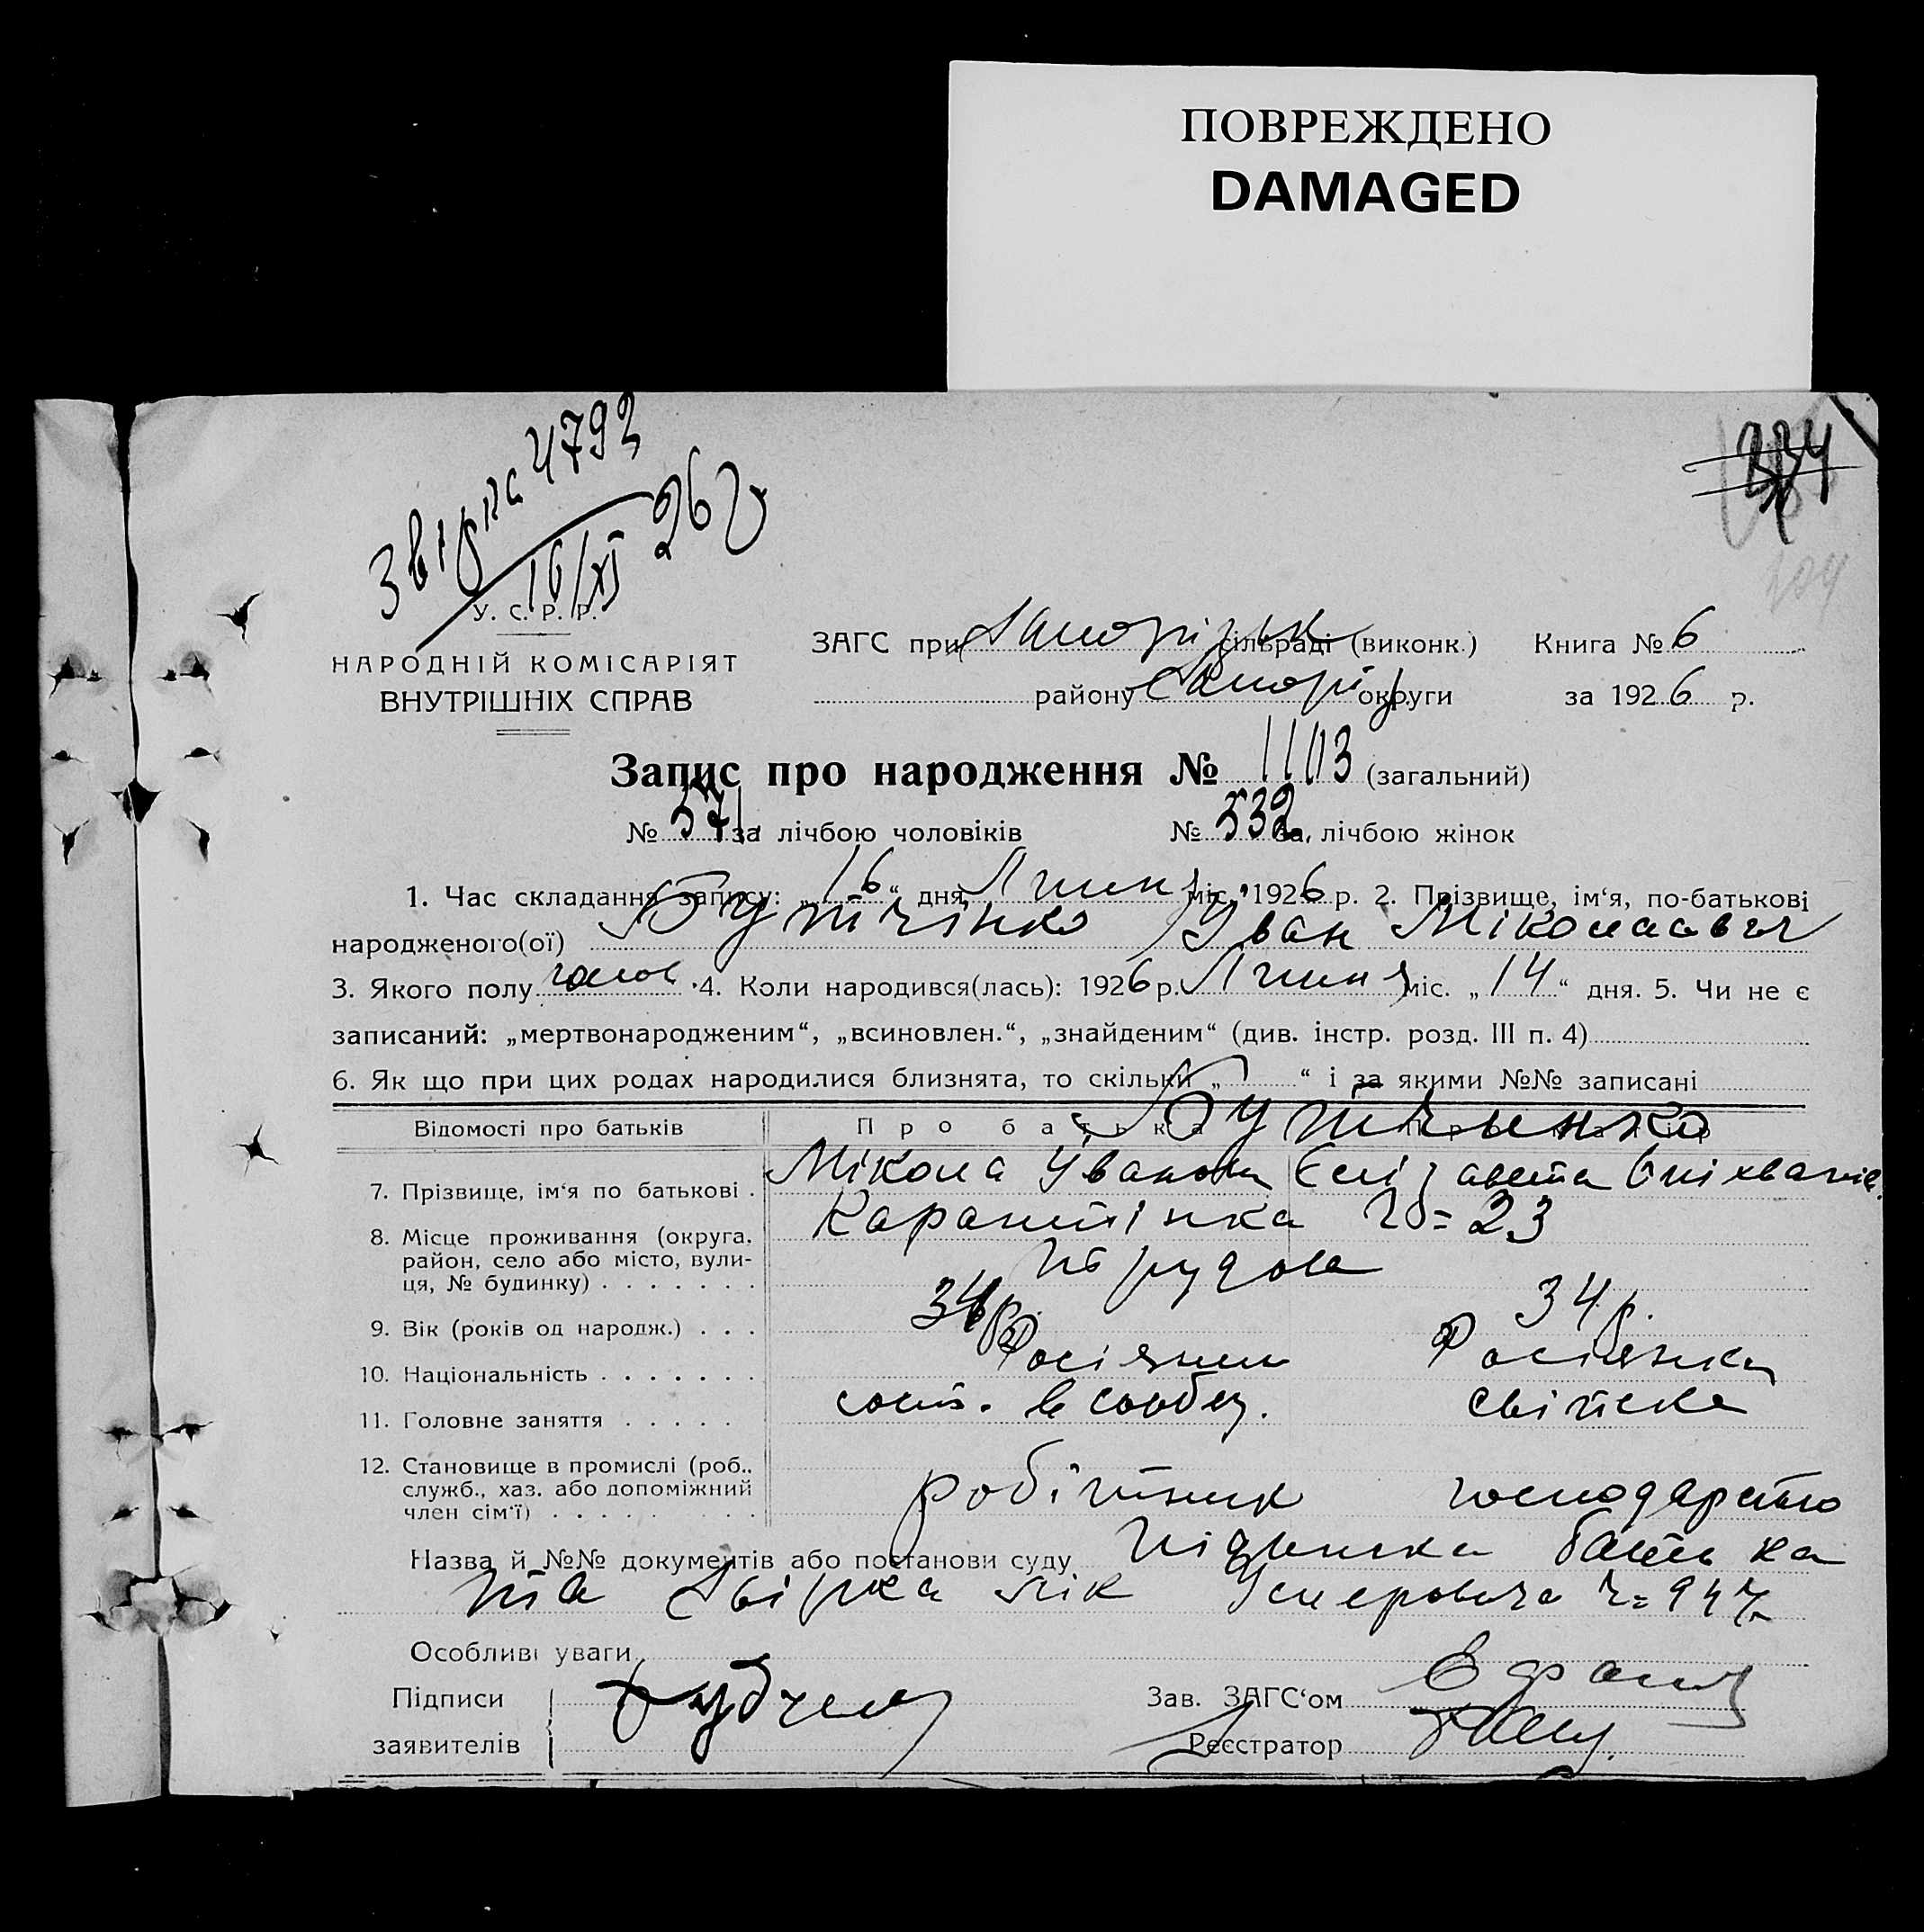 ПОВРЕЖДЕНО
DAMAGED
Звірка 4792
16/XI 26 р
334
109
У. С. Р. Р.
НАРОДНІЙ КОМІСАРІЯТ
ВНУТРІШНІХ СПРАВ
ЗАГС при сільраді (виконк.) Книга № 6
району Запоріз округи за 1926 р.
Запис про народження № 1103 (загальний)
№ 571 за лічбою чоловіків № 532 за лічбою жінок
1. Час складання запису: „16“ дня Липня міс. 1926 р. 2. Прізвище, ім‘я, по-батькові
народженого(ої) Іван Міколаавич
3. Якого полу чолов. 4. Коли народився(лась): 1926 р. Липня міс. „14“ дня. 5. Чи не є
записаний: „мертвонародженим“, „всиновлен.“, „знайденим“ (див. інстр. розд. III п. 4)
6. Як що при цих родах народилися близнята, то скільки „ “ і за якими №№ записані
Відомості про батьків Про батька Про матір
7. Прізвище, ім‘я по батькові . Мікола Іванов Єлізавета
8. Місце проживання (округа, Карантінка 23
район, село або місто, вули-
ця, № будинку)
9. Вік (років од народж.) 34 р. 34 р.
10. Національність Росіянин Росіянка
11. Головне заняття
12. Становище в промислі (роб., робітник господарство
служб., хаз. або допоміжний
член сім‘ї)
Назва й №№ документів або постанови суду батька
та 947
Особливі уваги
Підписи Зав. ЗАГС‘ом
заявителів Реєстратор